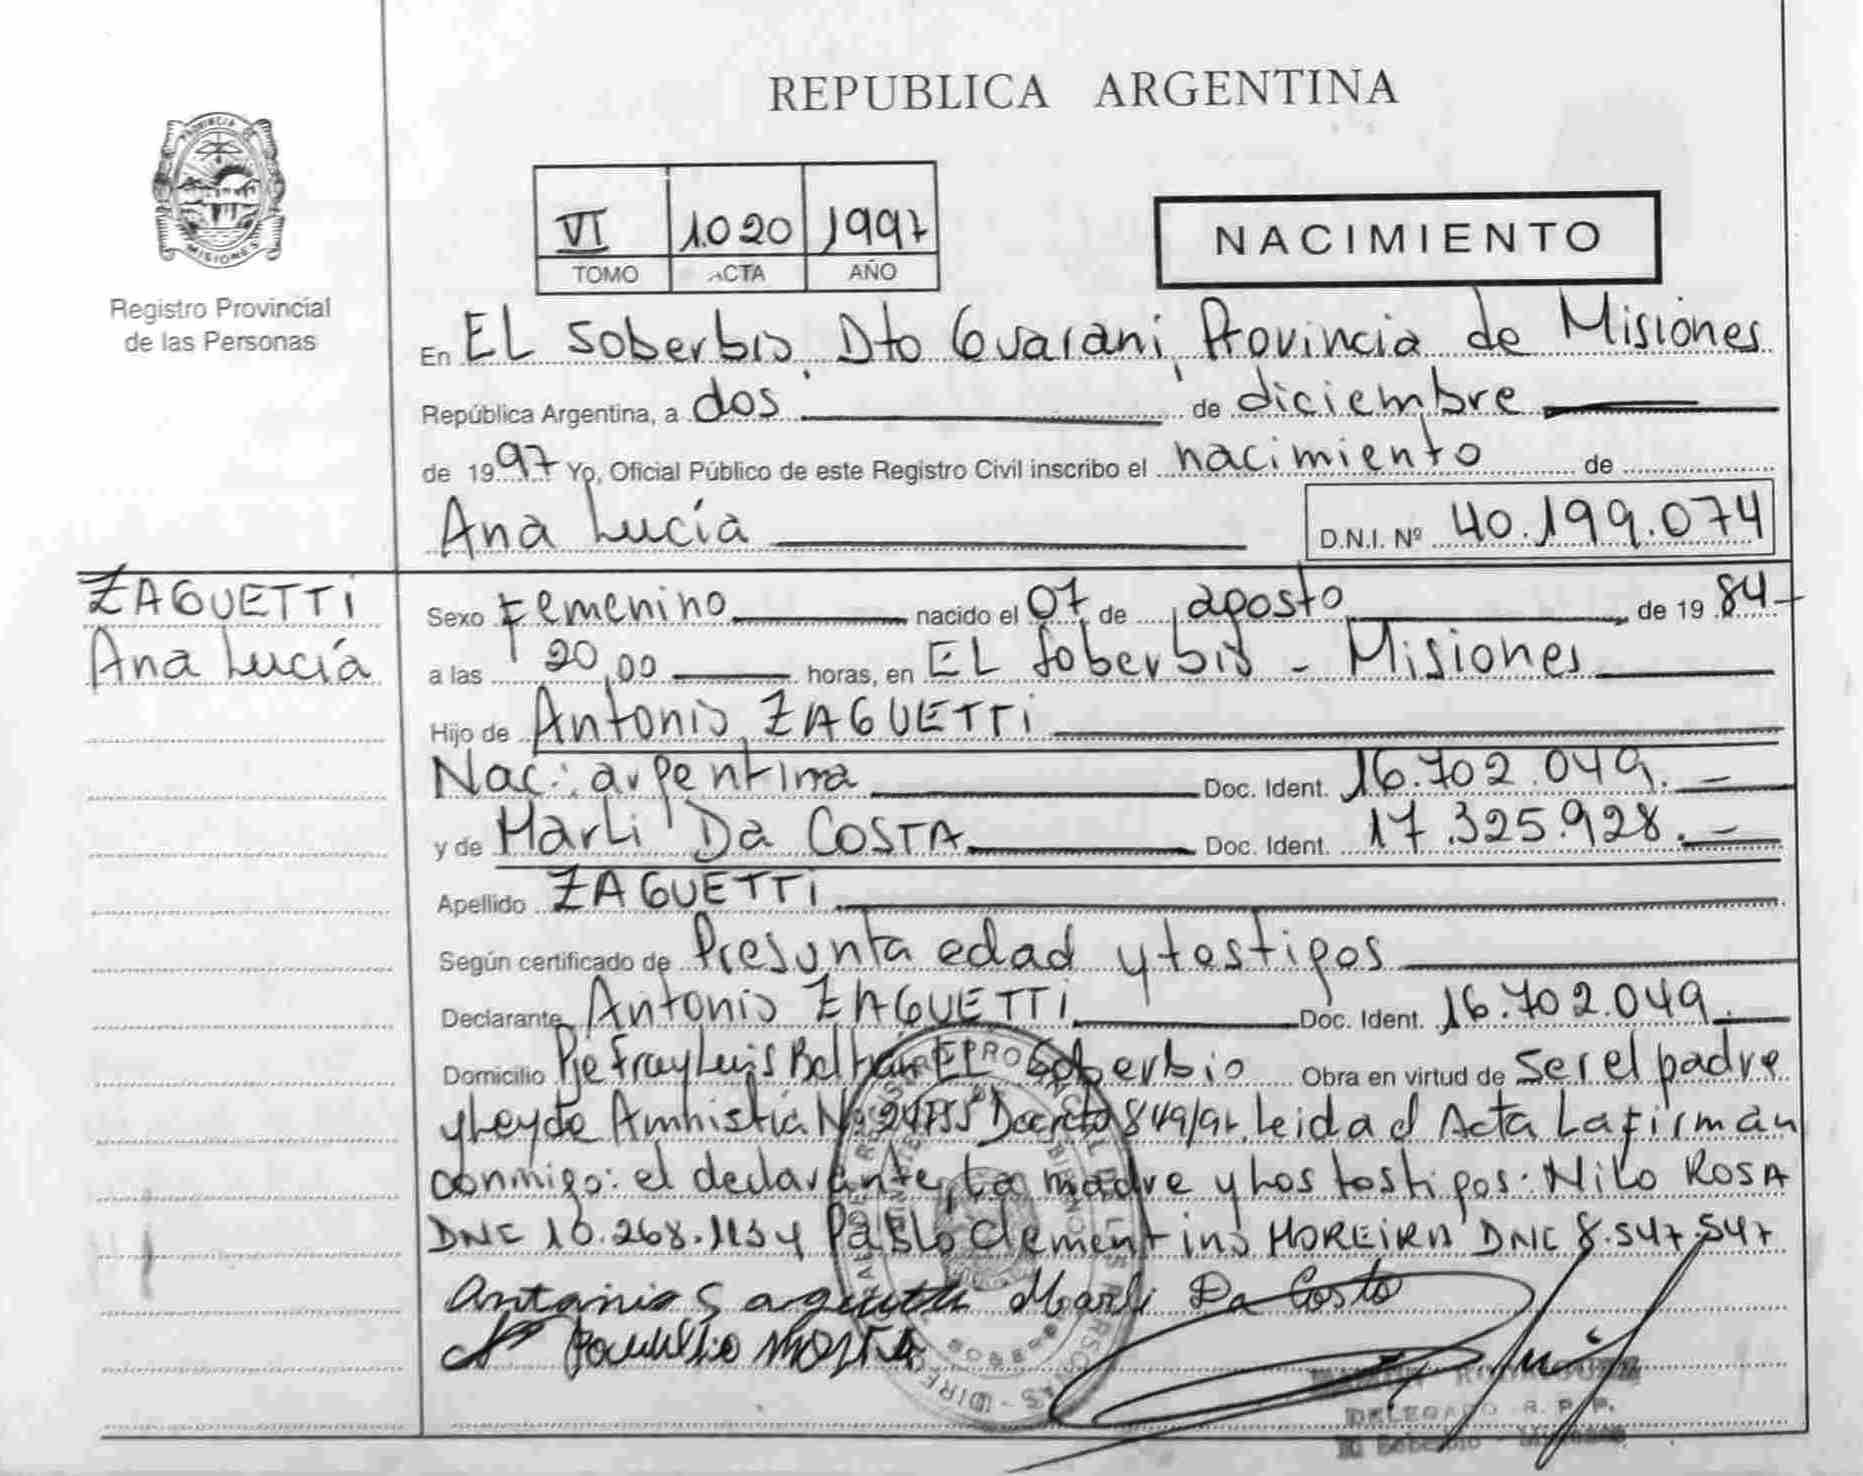 REPUBLICA ARGENTINA
PROVINCIA DE
MISIONES
Registro Provincial
de las Personas
VI 1020 1997
TOMO ACTA AÑO
NACIMIENTO
En EL Soberbio, Dto Guaraní, Provincia de Misiones
República Argentina, a dos de diciembre
de 1997 Yo, Oficial Público de este Registro Civil inscribo el nacimiento de
Ana Lucía D.N.I. Nº 40.199.074
ZAGUETTi
Ana Lucía
Sexo Femenino nacido el 07 de agosto de 1984
a las 20,00 horas, en EL Soberbio - Misiones
Hijo de Antonio ZAGUETTi
Nac: argentina Doc. Ident. 16.702.049.-
y de Marli Da COSTA Doc. Ident. 17.325.928.-
Apellido ZAGUETTi
Según certificado de Presunta edad y testigos
Declarante Antonio ZAGUETTi Doc. Ident. 16.702.049.
Domicilio Pje Fray Luis Beltrán EL Soberbio Obra en virtud de ser el padre
y Ley de Amnistía Nº 24755 Decreto 849/96. Leida el Acta La firman
conmigo: el declarante, La madre y Los testigos: Nilo ROSA
DNI 10.268. Pablo Clementino MOREIRA DNI 8.547.547
Antonio Saguetti Marli Da Costa
DELEGADO R. P. P.
El Soberbio - Misiones